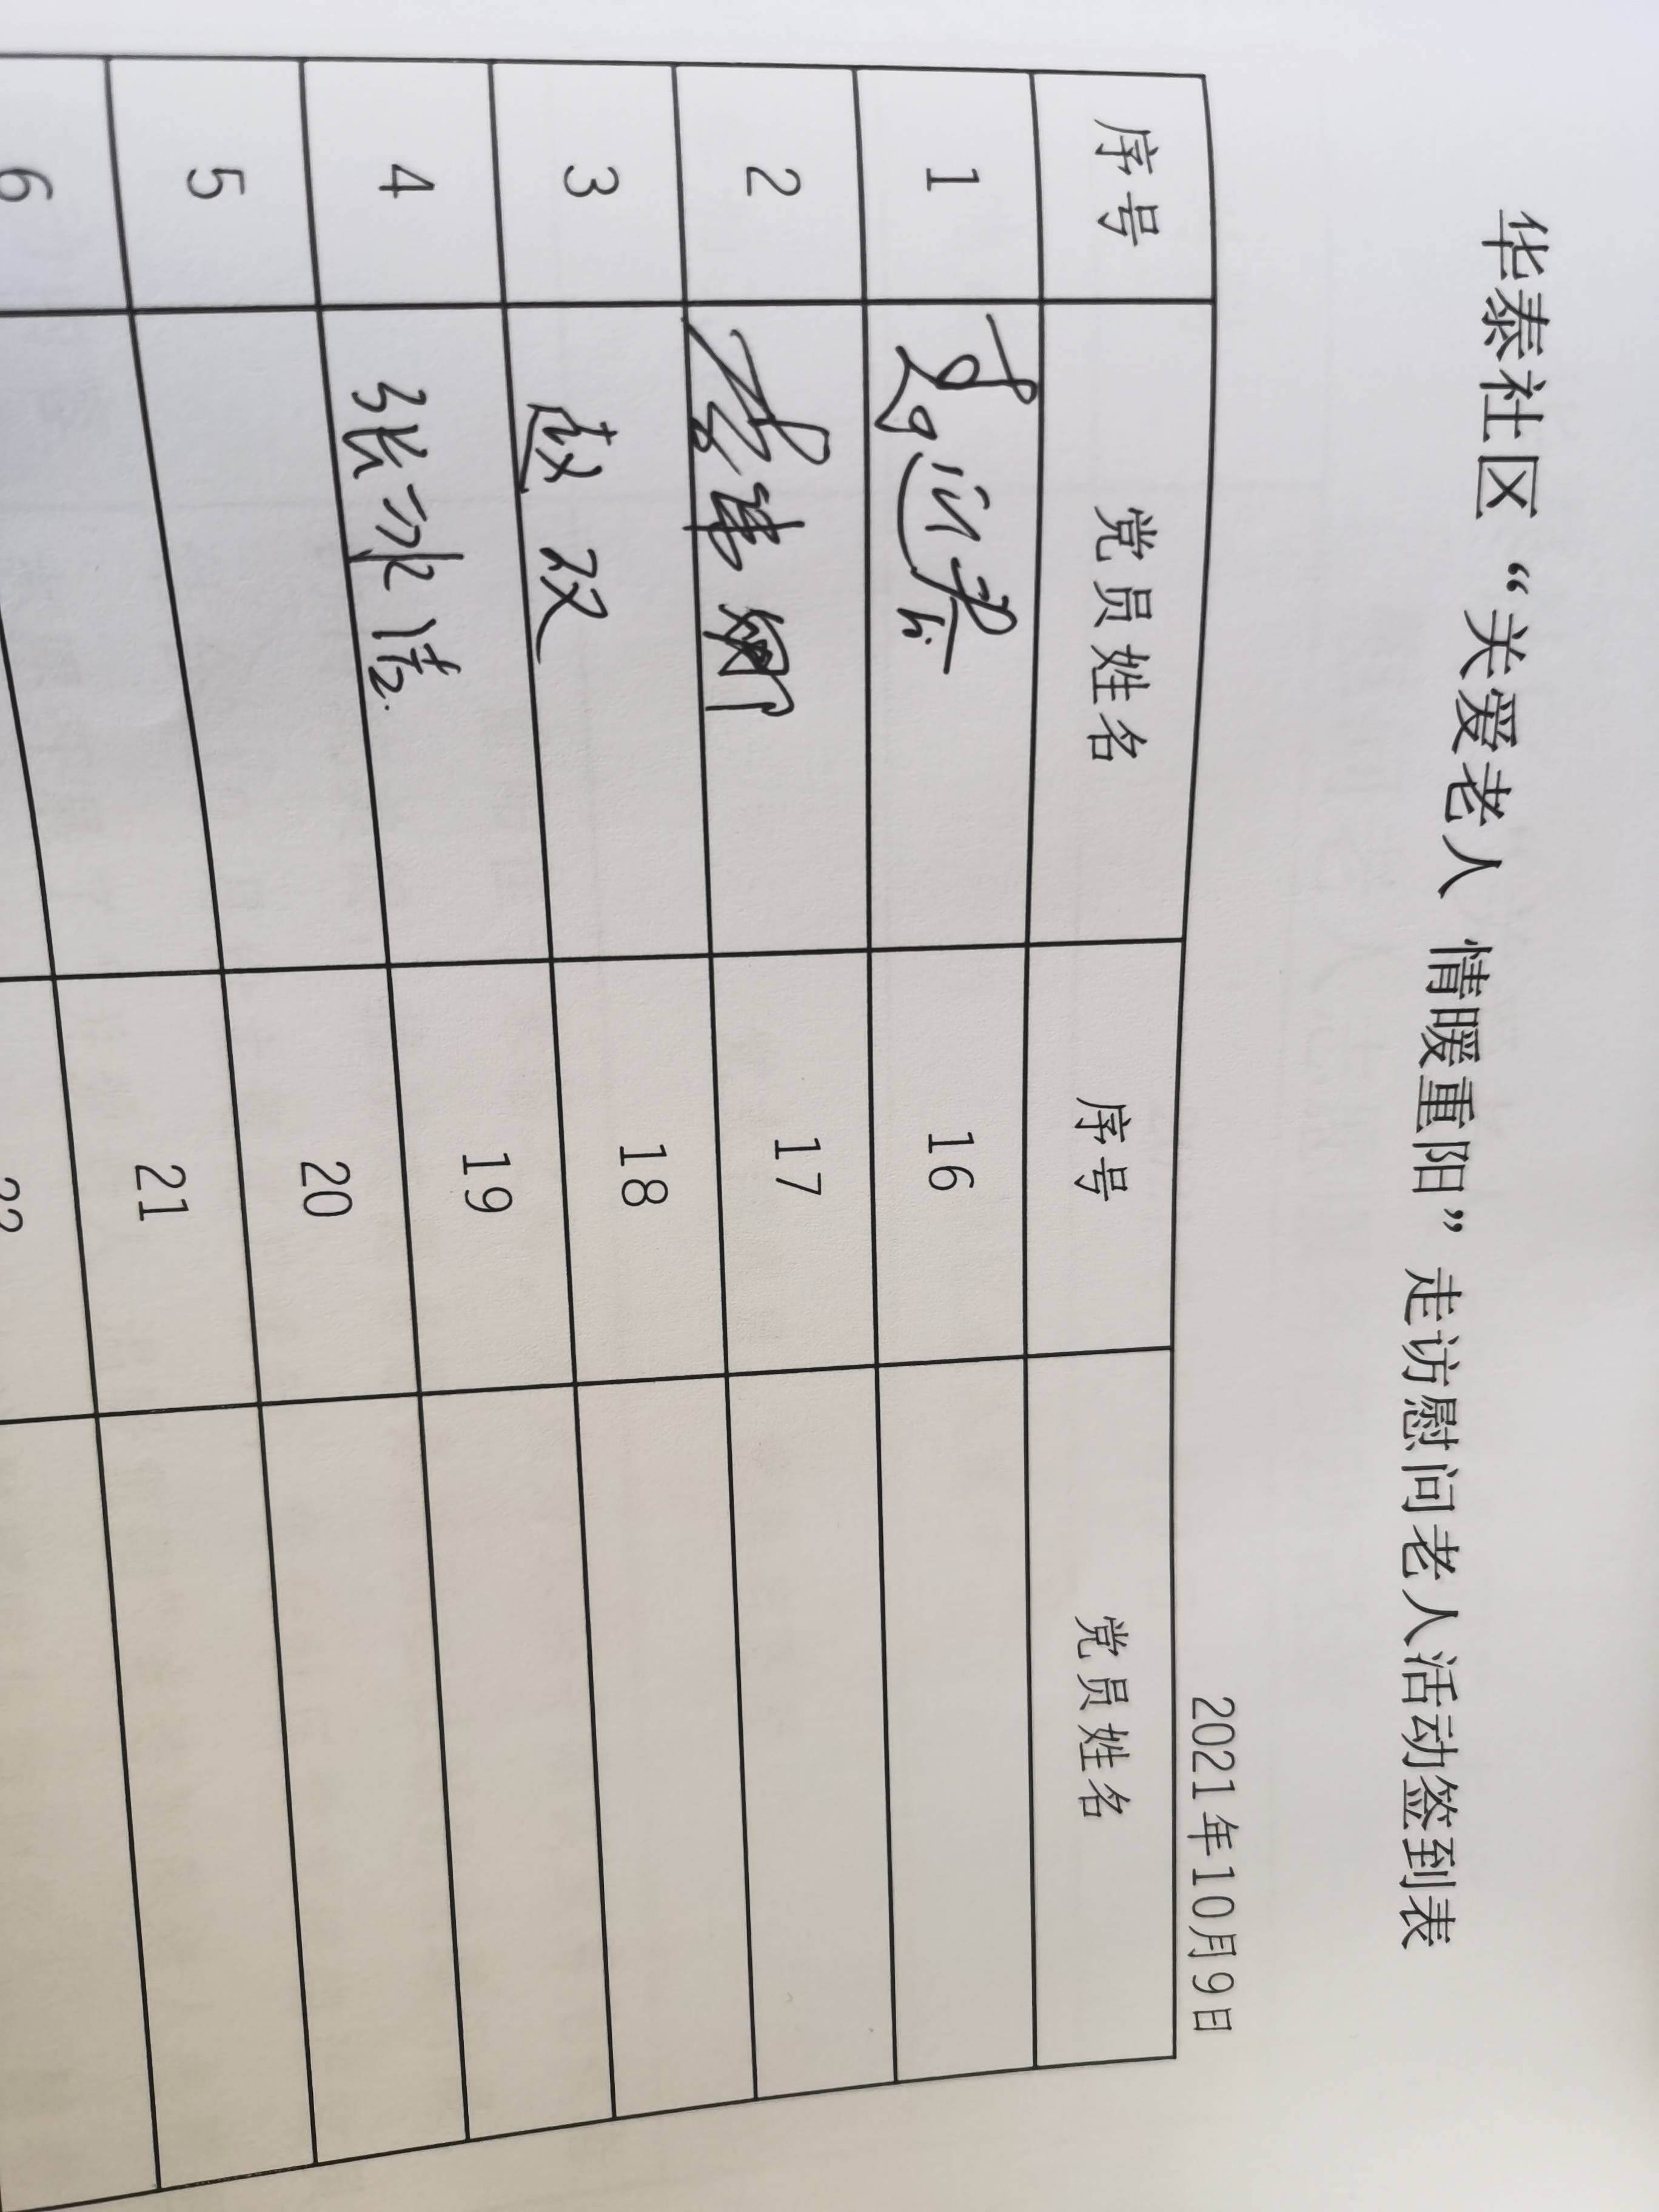 华泰社区“关爱老人 情暖重阳”走访慰问老人活动签到表
2021年10月9日
序号 党员姓名 序号 党员姓名
1 16
2 17
3 赵双 18
4 张冰洁 19
5 20
6 21
22